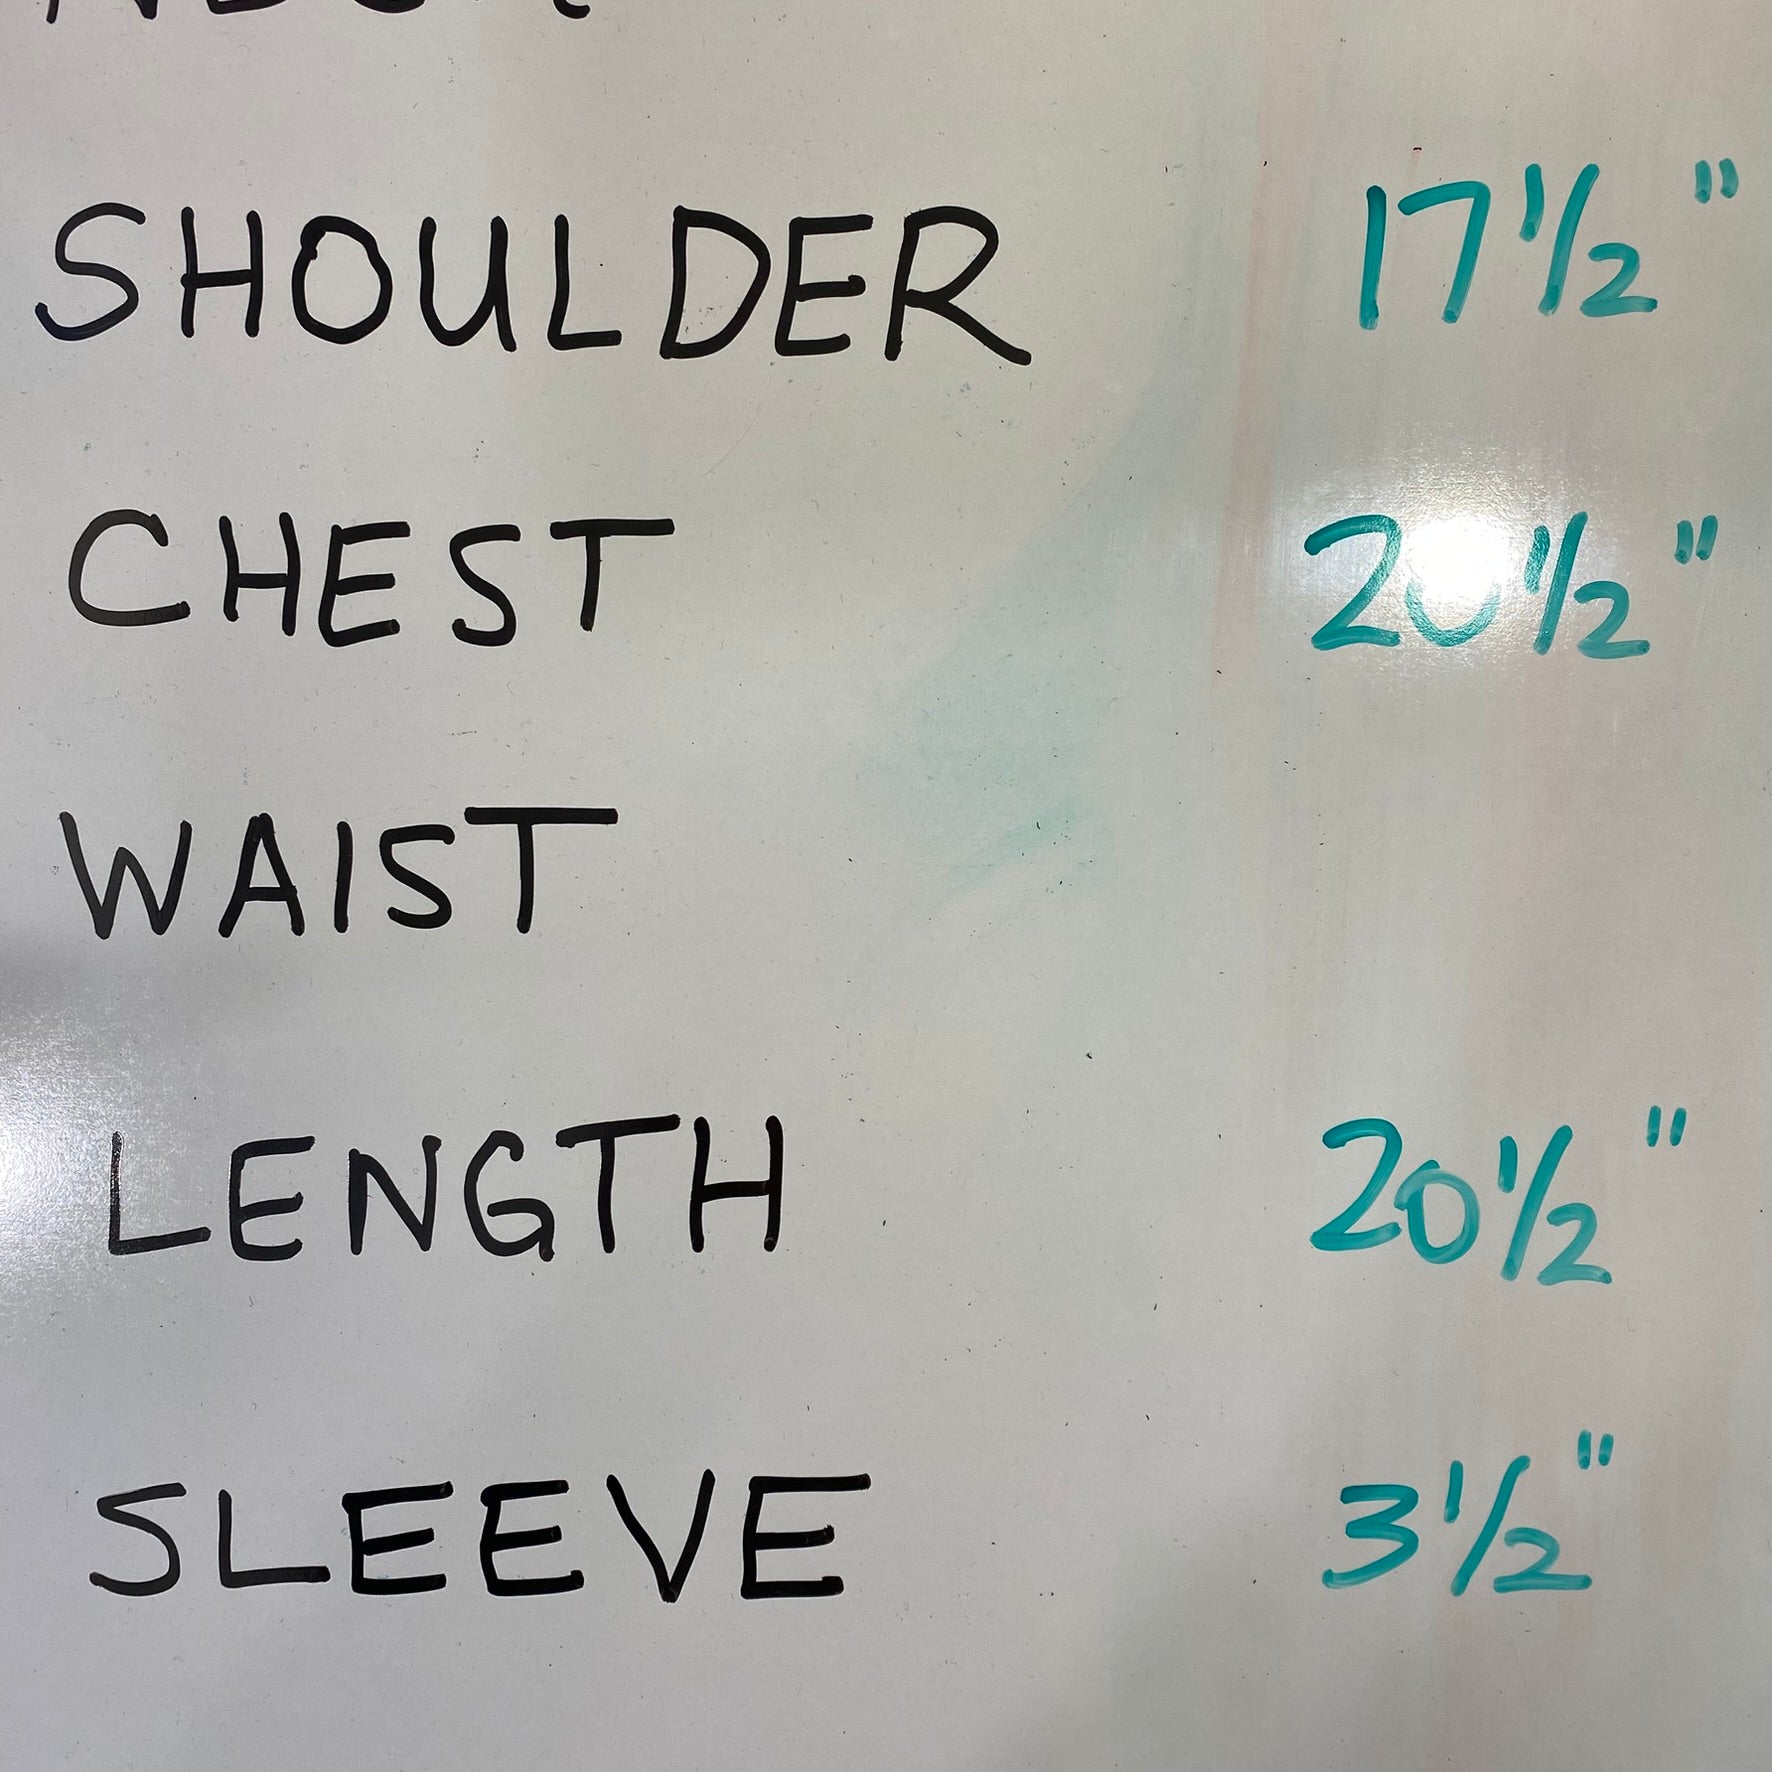 SHOULDER 17 1/2"
CHEST 20 1/2"
WAIST
LENGTH 20 1/2"
SLEEVE 3 1/2"